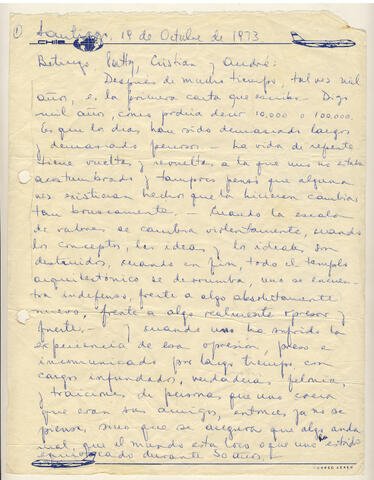 ①
Santiago, 19 de Octubre de 1973
CHILE
Betingo, Cristián y Andrés:
Después de mucho tiempo, tal vez mil
años, es la primera carta que escribo. Digo
mil años, como podría decir 10.000 o 100.000.
Es que los días han sido demasiado largos
y demasiado penosos.- La vida de repente
tiene vueltas y revueltas a la que uno no estaba
acostumbrado y tampoco pensó que alguna
vez existieran hechos que la hicieran cambiar
tan bruscamente.- Cuando la escala
de valores se cambia violentamente, cuando
los conceptos, las ideas y los ideales son
destruidos, cuando en fin, todo el templo
arquitectónico se derrumba, uno se encuen-
tra indefenso, frente a algo absolutamente
nuevo, frente a algo realmente opresor y
fuerte.- Y cuando uno ha sufrido la
experiencia de esa opresión, preso e
incomunicado por largo tiempo con
cargos infundados, verdaderas felonías,
y traiciones de personas que uno creía
que eran sus amigos, entonces ya no se
piensa, sino que se asegura que algo anda
mal, que el mundo esta loco o que uno ha estado
equivocado durante 50 años.-
CORREO AEREO